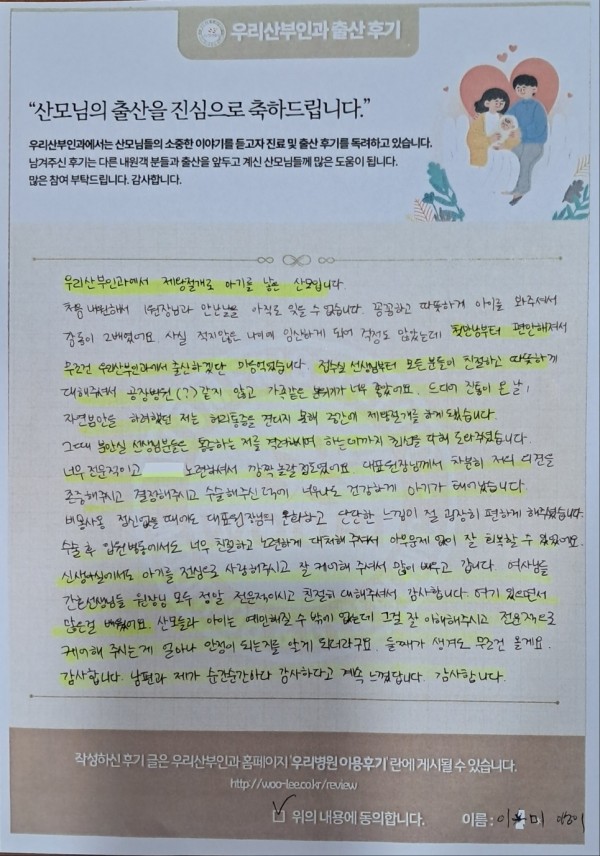 우리산부인과 출산 후기
“산모님의 출산을 진심으로 축하드립니다.”
우리산부인과에서는 산모님들의 소중한 이야기를 듣고자 진료 및 출산 후기를 독려하고 있습니다.
남겨주신 후기는 다른 내원객 분들과 출산을 앞두고 계신 산모님들께 많은 도움이 됩니다.
많은 참여 부탁드립니다. 감사합니다.
우리산부인과에서 제왕절개로 아기를 낳은 산모입니다.
처음 내원해서 1원장님과 만난날을 아직도 잊을 수 없습니다. 꼼꼼하고 따뜻하게 아이를 봐주셔서
감동이 2배였어요. 사실 적지않은 나이에 임신하게 되어 걱정도 많았는데 첫만남부터 편안해져서
무조건 우리산부인과에서 출산하겠단 마음먹었습니다. 접수실 선생님부터 모든분들이 친절하고 따뜻하게
대해주셔서 공장병원(?)같지 않고 가족같은 분위기가 너무 좋았어요. 드디어 진통이 온 날!
자연분만을 하려했던 저는 허리통증을 견디지 못해 중간에 제왕절개를 하게 됐습니다.
그때 분만실 선생님분들은 통증하는 저를 격려하시며 하는데까지 최선을 다해 도와주셨습니다.
너무 전문적이고 노련하셔서 깜짝 놀랄 정도였어요. 대표원장님께서 차분히 저의 의견을
존중해주시고 결정해주시고 수술해주신 덕에 너무나도 건강하게 아기가 태어났습니다.
비몽사몽 정신없을 때에도 대표원장님의 온화하고 단단한 느낌이 절 굉장히 편하게 해주셨습니다.
수술 후 입원병동에서도 너무 친절하고 노련하게 대처해 주셔서 아무문제 없이 잘 회복할 수 있었어요.
신생아실에서도 아기를 진심으로 사랑해주시고 잘 케어해 주셔서 많이 배우고 갑니다. 여사님들
간호선생님들 원장님 모두 정말 전문적이시고 친절히 대해주셔서 감사합니다. 여기 있으면서
많은걸 배웠어요. 산모들과 아이는 예민해질 수 밖에 없는데 그걸 잘 이해해주시고 전문적으로
케어해 주시는게 얼마나 안정이 되는지를 알게 되더라구요. 둘째가 생겨도 무조건 올게요.
감사합니다. 남편과 제가 순간순간마다 감사하다고 계속 느꼈답니다. 감사합니다.
작성하신 후기 글은 우리산부인과 홈페이지 '우리병원 이용후기' 란에 게시될 수 있습니다.
http://woo-lee.co.kr/review
위의 내용에 동의합니다. 이름 : 이 미